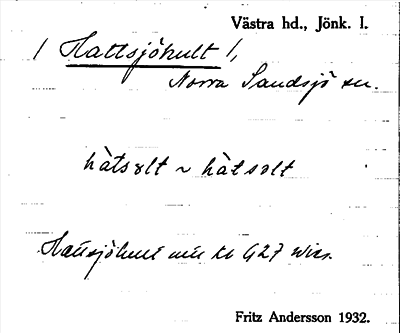 Västra hd., Jönk. l.
/ Hattsjöhult /,
Norra Sandsjö sn.
hàtsølt ~ hàtsolt
Hattsjöhult
Fritz Andersson 1932.